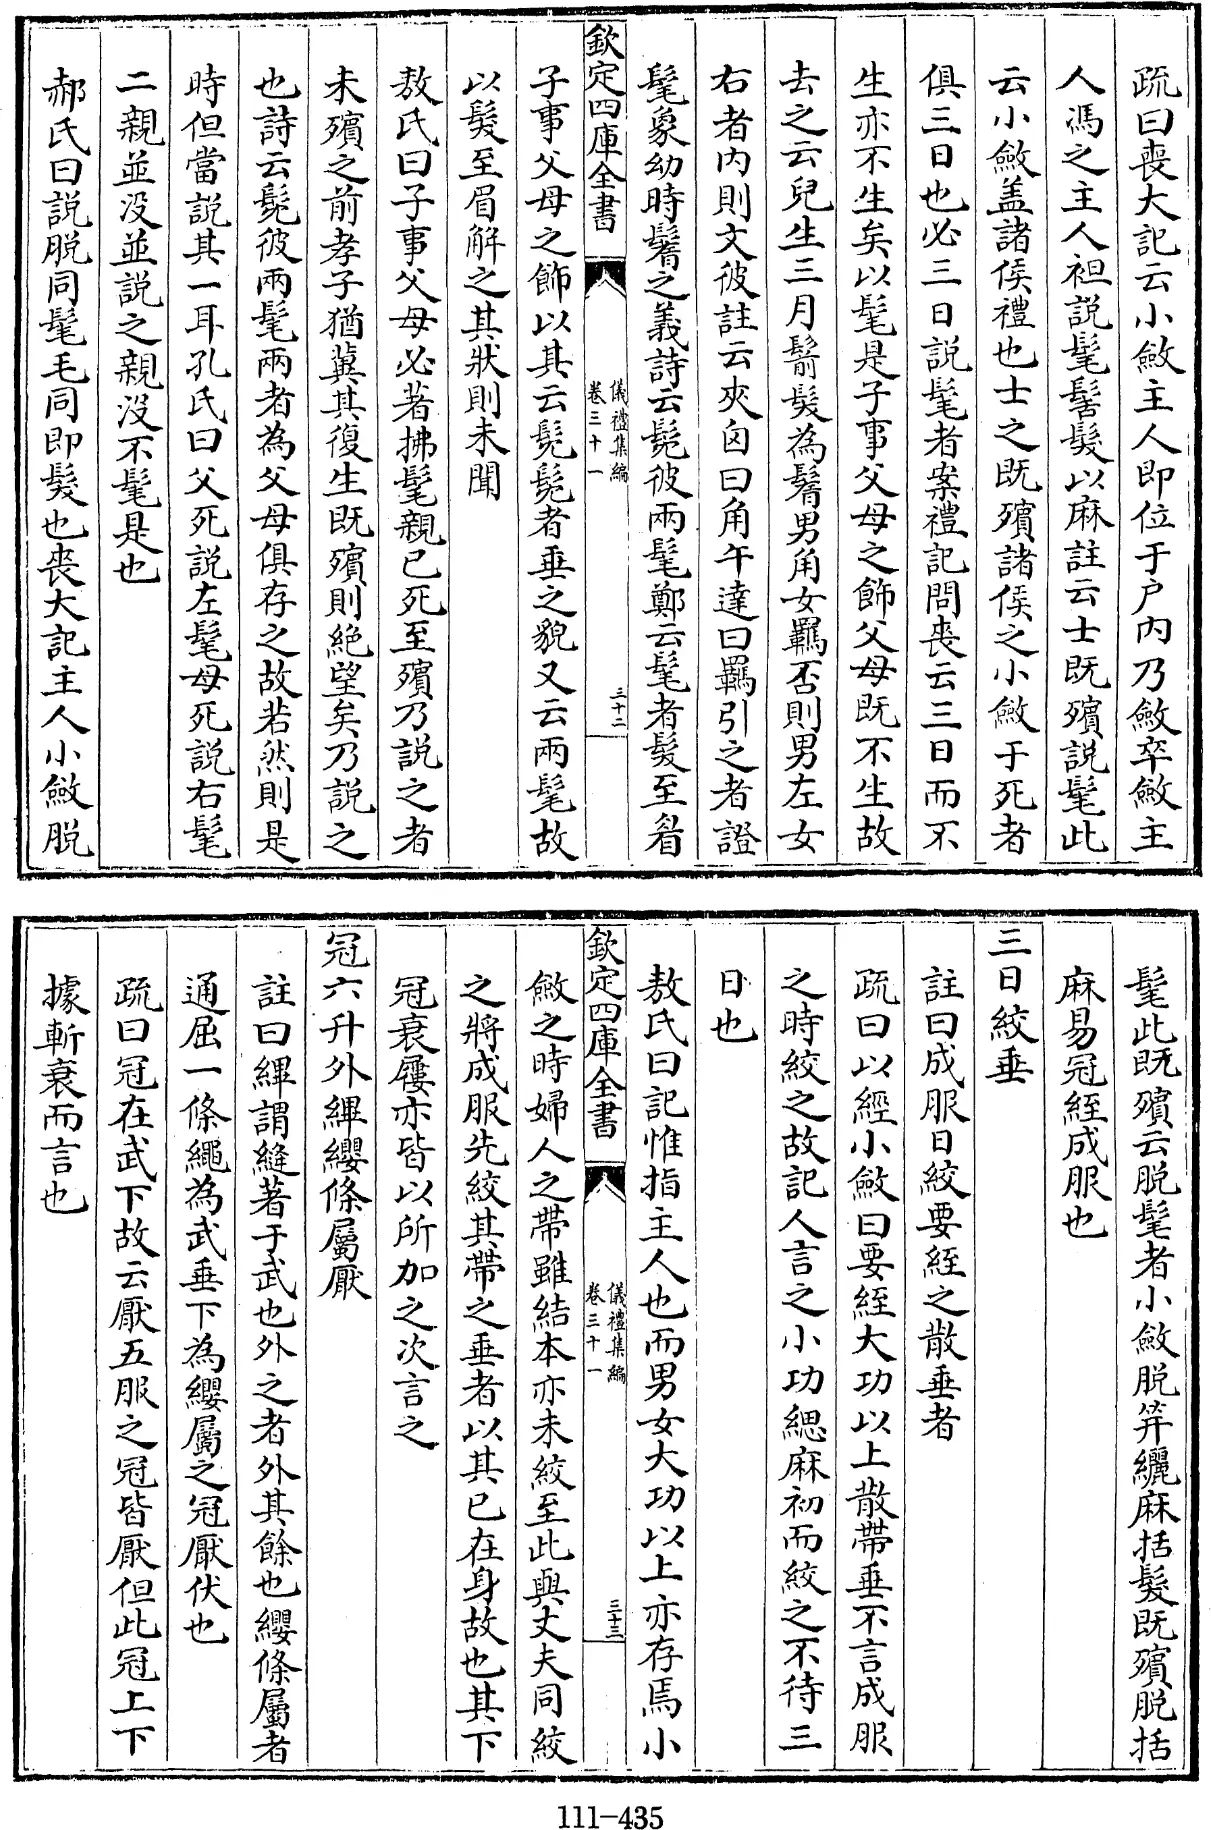 疏曰喪大記云小斂主人即位于户内乃斂卒斂主
人馮之主人袒説髦髺髮以麻註云士既殯説髦此
云小斂盖諸侯禮也士之既殯諸侯之小斂于死者
俱三日也必三日説髦者案禮記問喪云三日而不
生亦不生矣以髦是子事父母之飾父母既不生故
去之云兒生三月鬋髮為鬌男角女羈否則男左女
右者内則文彼註云夾囟曰角午達曰羈引之者證
髦象幼時鬌之義詩云髧彼兩髦鄭云髦者髮至眉
欽定四庫全書
儀禮集編
卷三十一
三十二
子事父母之飾以其云髧髧者垂之貌又云兩髦故
以髮至眉解之其狀則未聞
敖氏曰子事父母必著拂髦親已死至殯乃説之者
未殯之前孝子猶冀其復生既殯則絶望矣乃説之
也詩云髧彼兩髦兩者為父母俱存之故若然則是
時但當説其一耳孔氏曰父死説左髦母死説右髦
二親並没並説之親没不髦是也
郝氏曰説脱同髦毛同即髮也喪大記主人小斂脱
髦此既殯云脱髦者小斂脱笄纚麻括髮既殯脱括
麻易冠絰成服也
三日絞垂
註曰成服日絞要絰之散垂者
疏曰以經小斂曰要絰大功以上散帶垂不言成服
之時絞之故記人言之小功緦麻初而絞之不待三
日也
敖氏曰記惟指主人也而男女大功以上亦存焉小
欽定四庫全書
儀禮集編
卷三十一
三十三
斂之時婦人之帶雖結本亦未絞至此與丈夫同絞
之將成服先絞其帶之垂者以其已在身故也其下
冠衰屨亦皆以所加之次言之
冠六升外縪纓條屬厭
註曰縪謂縫著于武也外之者外其餘也纓條屬者
通屈一條繩為武垂下為纓屬之冠厭伏也
疏曰冠在武下故云厭五服之冠皆厭但此冠上下
據斬衰而言也
111-435